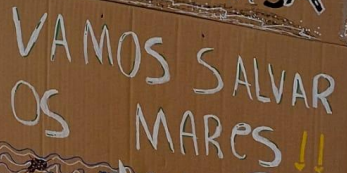 VAMOS SALVAR
OS MARES !!